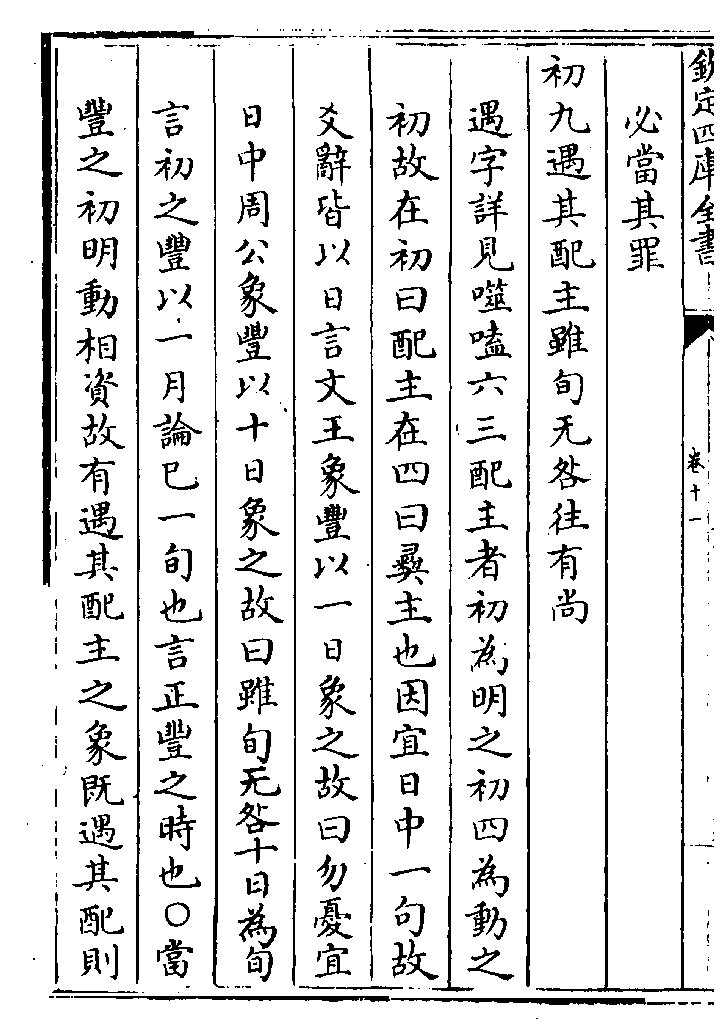 欽定四庫全書
卷十一
必當其罪
初九遇其配主雖旬无咎往有尚
遇字詳見噬嗑六三配主者初為明之初四為動之
初故在初曰配主在四曰彛主也因宜日中一句故
爻辭皆以日言文王象豐以一日象之故曰勿憂宜
日中周公象豐以十日象之故曰雖旬无咎十日為旬
言初之豐以一月論已一旬也言正豐之時也○當
豐之初明動相資故有遇其配主之象既遇其配則